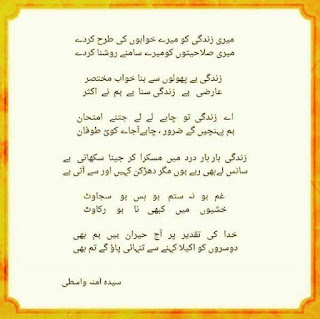 میری زندگی کو میرے خوابوں کی طرح کردے
میری صلاحیتوں کومیرے سامنے روشنا کردے
زندگی ہے پھولوں سے بنا خواب مختصر
عارضی ہے زندگی سنا ہے ہم نے اکثر
اے زندگی تو چاہے لے لے جتنے امتحان
ہم پہنچیں گے ضرور ، چاہےآجاے کوئ طوفان
زندگی بار بار درد میں مسکرا کر جینا سکھاتی ہے
سانس لےبھی رہے ہوں مگر دھڑکن کہیں اور سے آتی ہے
غم ہو نہ ستم ہو بس ہو سجاوٹ
خشیوں میں کبھی نا ہو رکاوٹ
خدا کی تقدیر پر آج حیران ہیں ہم بھی
دوسروں کو اکیلا کہنے سے تنہائی پاؤ گے تم بھی
سیدہ آمنہ واسطی